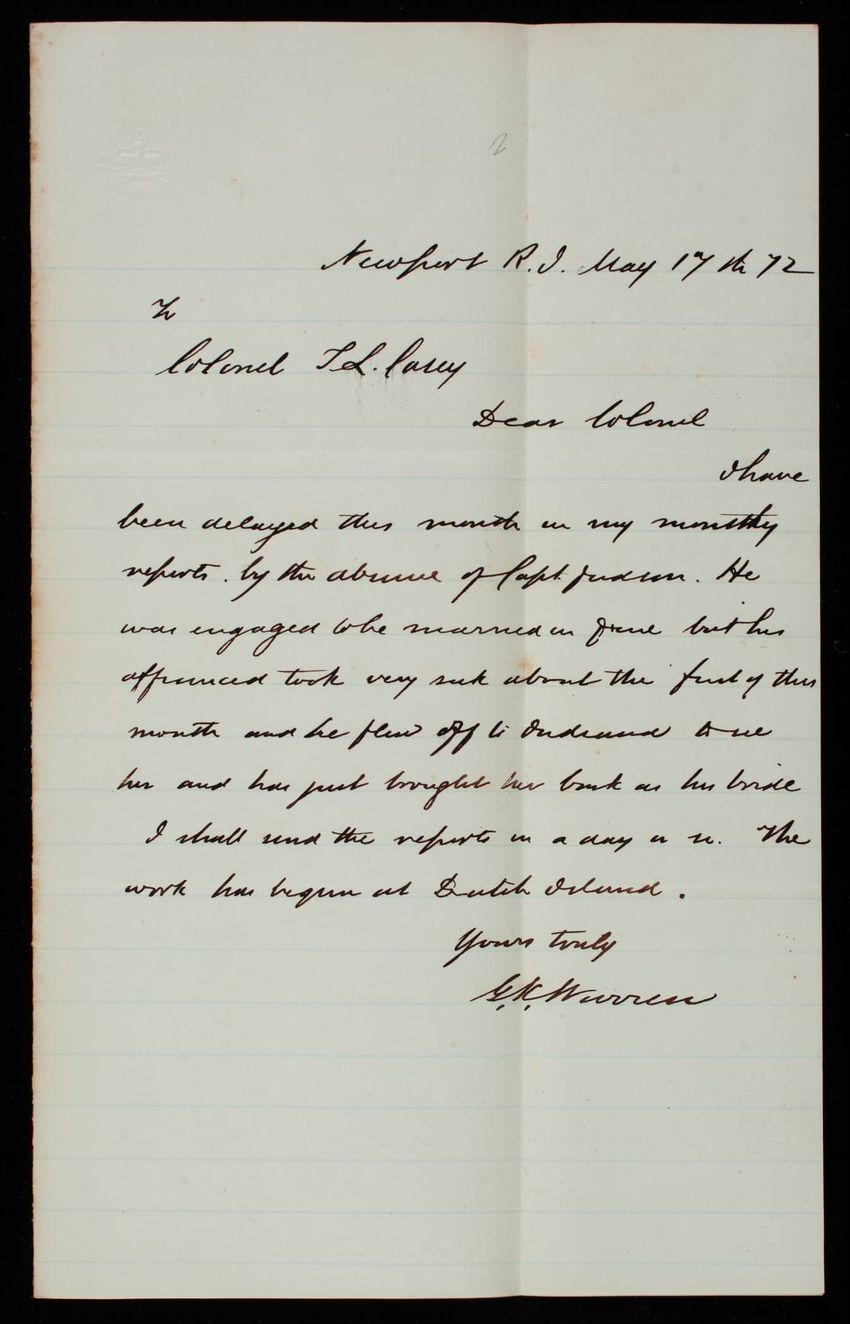 2
Newport R.I. May 17th 72
To
Colonel T.L. Casey
Dear Colonel
I have
been delayed this month in my monthly
reports. by the absence of Capt. Judson. He
was engaged to be married in June but his
affianced took very sick about the first of this
month and he flew off to to see
her and has just brought her back as his bride
I shall send the reports in a day or so. The
work has begun at Dutch Island.
Yours truly
G.K. Warren